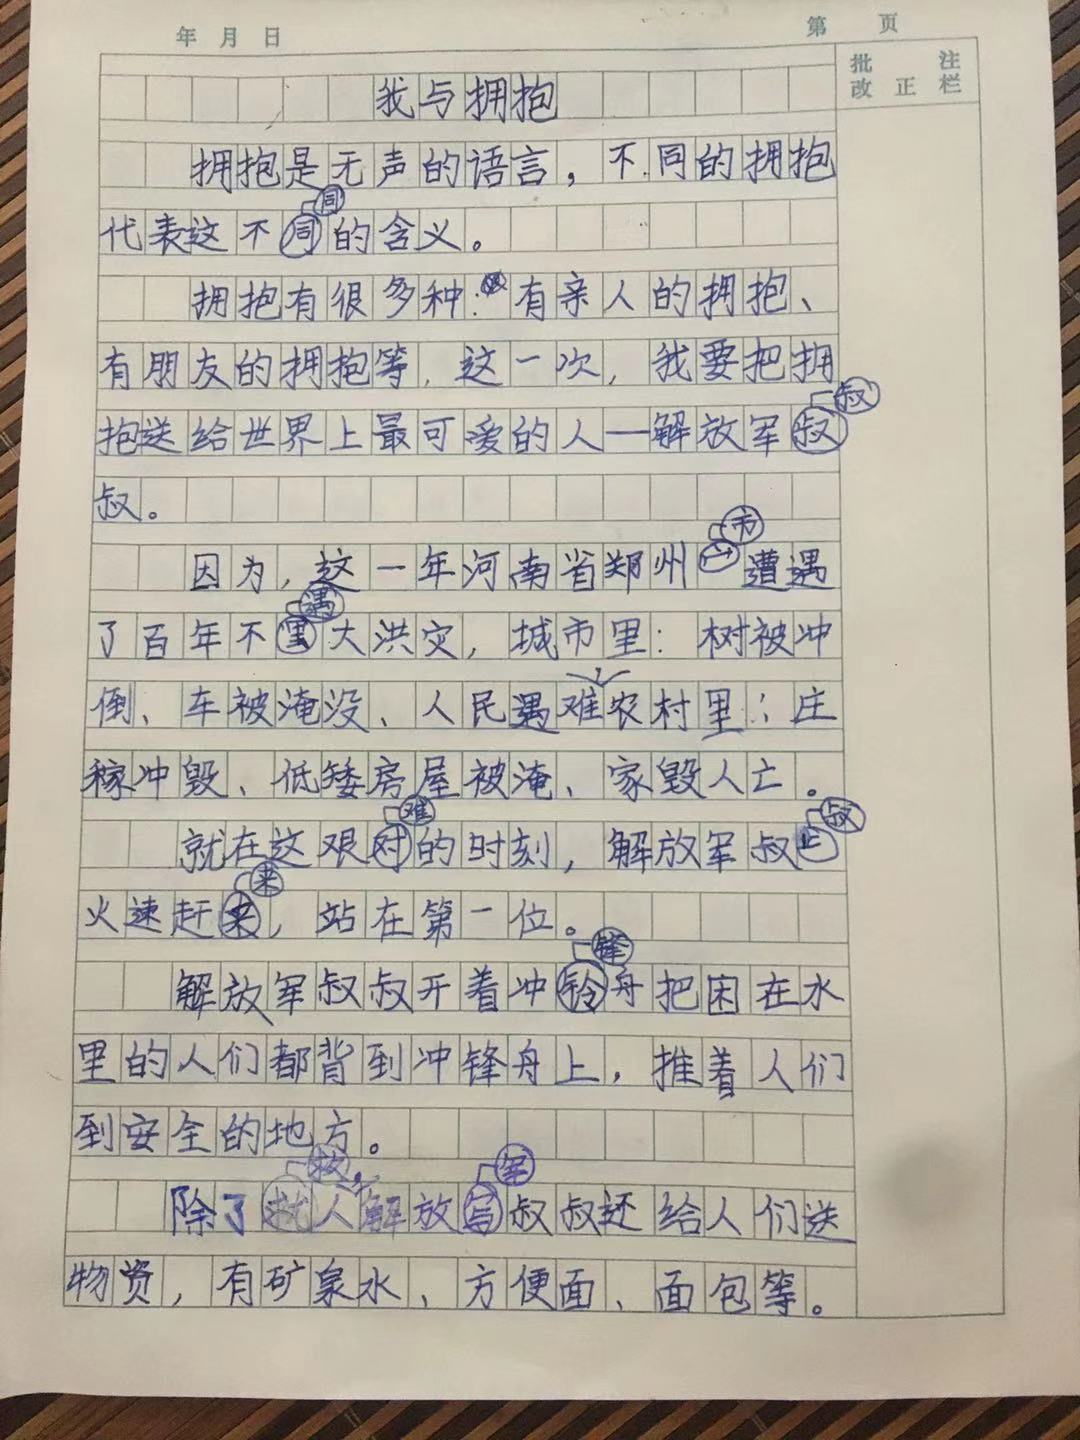 年 月 日
第 页
批 注
改 正 栏
我与拥抱
拥抱是无声的语言，不同的拥抱
代表这不同的含义。
拥抱有很多种：有亲人的拥抱、
有朋友的拥抱等，这一次，我要把拥
抱送给世界上最可爱的人—解放军叔
叔。
因为，这一年河南省郑州市遭遇
了百年不遇大洪灾，城市里：树被冲
倒、车被淹没、人民遇难，农村里：庄
稼冲毁、低矮房屋被淹、家毁人亡。
就在这艰难的时刻，解放军叔叔
火速赶来，站在第一位。
解放军叔叔开着冲锋舟把困在水
里的人们都背到冲锋舟上，推着人们
到安全的地方。
除了救人，解放军叔叔还给人们送
物资，有矿泉水、方便面、面包等。